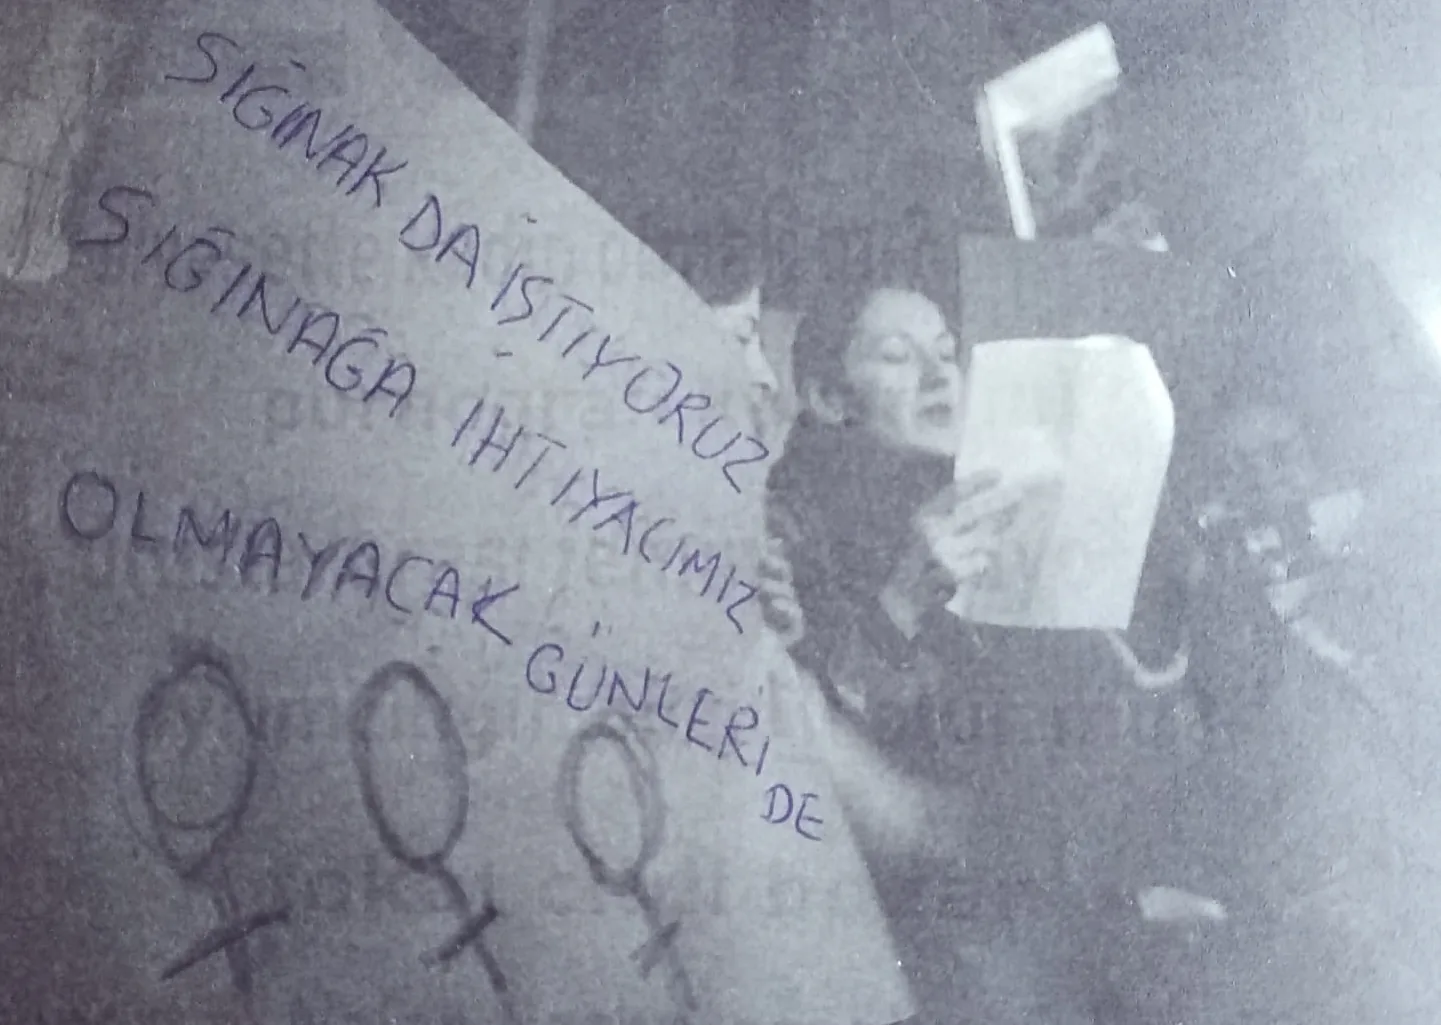 SIĞINAK DA İSTİYORUZ
SIĞINAĞA İHTİYACIMIZ
OLMAYACAK GÜNLERİ
DE